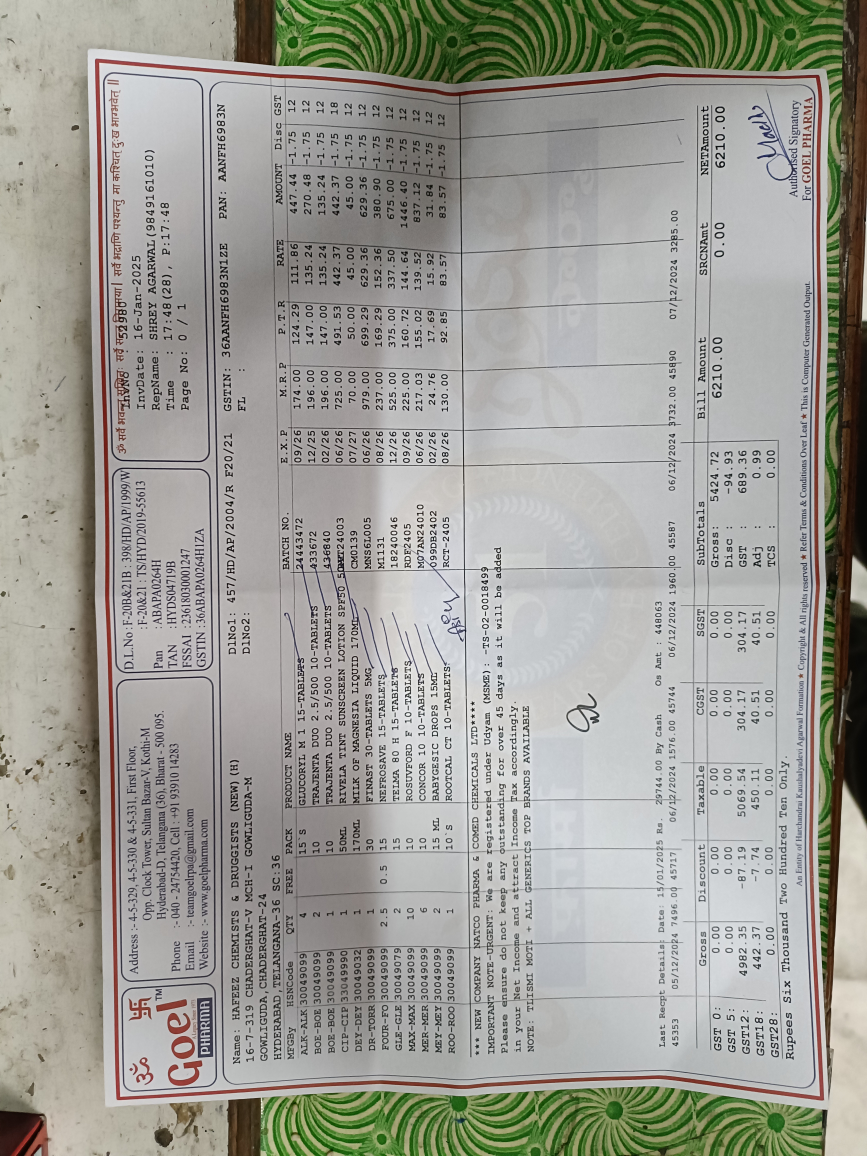 ॐ सर्वे भवन्तु सुखिनः सर्वे सन्तु निरामया। सर्वे भद्राणि पश्यन्तु मा कश्चित् दुःख भाग्भवेत् ||
ॐ 卐
Goel™
PHARMA
Address :- 4-5-329, 4-5-330 & 4-5-331, First Floor,
Opp. Clock Tower, Sultan Bazar-V, Kothi-M
Hyderabad-D, Telangana (30), Bharat - 500 095.
Phone :- 040 - 24754420, Cell : +91 93910 14283
Email :- teamgoelrpa@gmail.com
Website :- www.goelpharma.com
D.L.No : F-20B&21B : 398/HD/AP/1999/W
: F-20&21 : TS/HYD/2019-55613
Pan : ABAPA0264H
TAN : HYDS04719B
FSSAI : 23618030001247
GSTIN : 36ABAPA0264H1ZA
InvNo : 52980
InvDate: 16-Jan-2025
RepName: SHREY AGARWAL(9849161010)
Time : 17:48(28), P:17:48
Page No: 0 / 1
Name: HAFEEZ CHEMISTS & DRUGGISTS (NEW) (H)
16-7-319 CHADERGHAT-V MCH-I GOWLIGUDA-M
GOWLIGUDA,CHADERGHAT-24
HYDERABAD,TELANGANA-36 SC:36
DlNo1: 457/HD/AP/2004/R F20/21 GSTIN: 36AANFH6983N1ZE PAN: AANFH6983N
DlNo2: FL :
MFGBy HSNCode QTY FREE PACK PRODUCT NAME BATCH NO. E.X.P M.R.P P.T.R RATE AMOUNT Disc GST
ALK-ALK 30049099 4 15`S GLUCORYL M 1 15-TABLETS 24443472 09/26 174.00 124.29 111.86 447.44 -1.75 12
BOE-BOE 30049099 2 10 TRAJENTA DUO 2.5/500 10-TABLETS 433672 12/25 196.00 147.00 135.24 270.48 -1.75 12
BOE-BOE 30049099 1 10 TRAJENTA DUO 2.5/500 10-TABLETS 436840 02/26 196.00 147.00 135.24 135.24 -1.75 12
CIP-CIP 33049990 1 50ML RIVELA TINT SUNSCREEN LOTION SPF50 24003 06/26 725.00 491.53 442.37 442.37 -1.75 18
DEY-DEY 30049032 1 170ML MILK OF MAGNESIA LIQUID 170ML CM0139 07/27 70.00 50.00 45.00 45.00 -1.75 12
DR-TORR 30049099 1 30 FINAST 30-TABLETS 5MG MNS6L005 06/26 979.00 699.29 629.36 629.36 -1.75 12
FOUR-FO 30049099 2.5 0.5 15 NEFROSAVE 15-TABLETS M1131 08/26 237.00 169.29 152.36 380.90 -1.75 12
GLE-GLE 30049079 2 15 TELMA 80 H 15-TABLETS 18240046 12/26 525.00 375.00 337.50 675.00 -1.75 12
MAX-MAX 30049099 10 10 ROSUVFORD F 10-TABLETS RDF2405 09/26 225.00 160.72 144.64 1446.40 -1.75 12
MER-MER 30049099 6 10 CONCOR 10 10-TABLETS M07AN24010 06/26 217.03 155.02 139.52 837.12 -1.75 12
MEY-MEY 30049099 2 15 ML BABYGESIC DROPS 15ML 099DB2402 02/26 24.76 17.69 15.92 31.84 -1.75 12
ROO-ROO 30049099 1 10`S ROOTCAL CT 10-TABLETS RCT-2405 08/26 130.00 92.85 83.57 83.57 -1.75 12
*** NEW COMPANY NATCO PHARMA & COMED CHEMICALS LTD****
IMPORTANT NOTE-URGENT: We are registered under Udyam (MSME): -TS-02-0018499
Please ensure do not keep any outstanding for over 45 days as it will be added
in your Net Income and attract Income Tax accordingly.
NOTE: TLISMI MOTI + ALL GENERICS TOP BRANDS AVAILABLE
Last Recpt Details: Date: 15/01/2025 Rs. 29744.00 By Cash Os Amt : 448063
45353 05/12/2024 7496.00 45717 06/12/2024 1576.00 45744 06/12/2024 1960.00 45587 06/12/2024 3732.00 45890 07/12/2024 3285.00
Gross Discount Taxable CGST SGST SubTotals Bill Amount SRCNAmt NETAmount
GST 0: 0.00 0.00 0.00 0.00 0.00 Gross: 5424.72 6210.00 0.00 6210.00
GST 5: 0.00 0.00 0.00 0.00 0.00 Disc : -94.93
GST12: 4982.35 -87.19 5069.54 304.17 304.17 GST : 689.36
GST18: 442.37 -7.74 450.11 40.51 40.51 Adj : 0.99
GST28: 0.00 0.00 0.00 0.00 0.00 TCS : 0.00
Rupees Six Thousand Two Hundred Ten Only.
Authorised Signatory
For GOEL PHARMA
An Entity of Harchandrai Kaushalyadevi Agarwal Formation ★ Copyright & All rights reserved ★ Refer Terms & Conditions Over Leaf ★ This is Computer Generated Output.